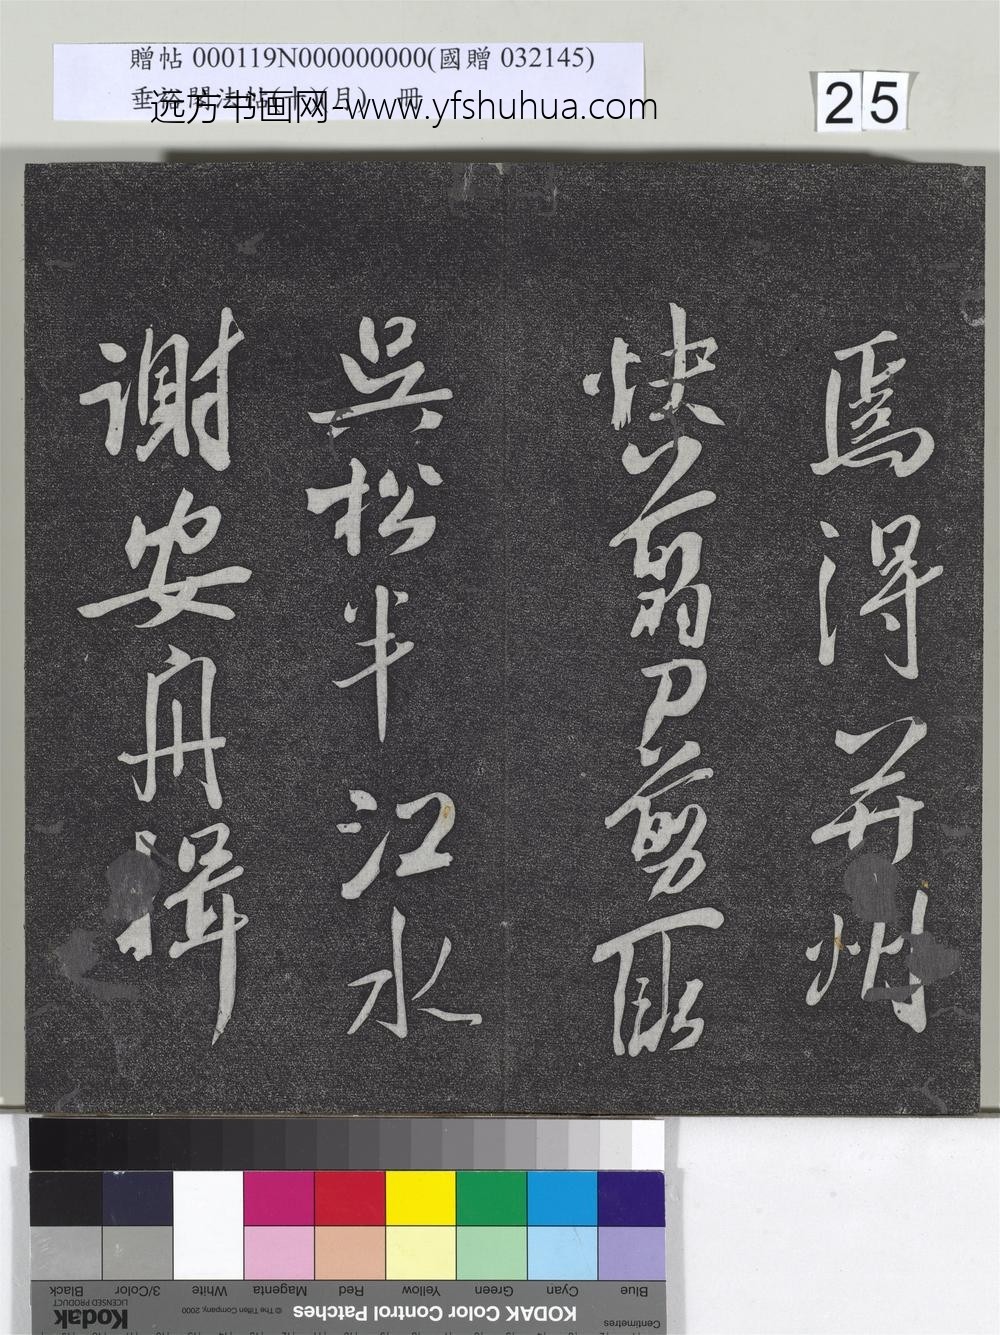 贈帖 000119N000000000(國贈 032145)
远方书画网-www.yfshuhua.com
冊
25
焉得并州
快剪刀剪取
吳松半江水
謝安舟楫
Black
3/Color
White
Magenta
Red
Yellow
Green
Cyan
Blue
Kodak
LICENSED PRODUCT
© The Tiffen Company, 2000
KODAK Color Control Patches
Centimetres